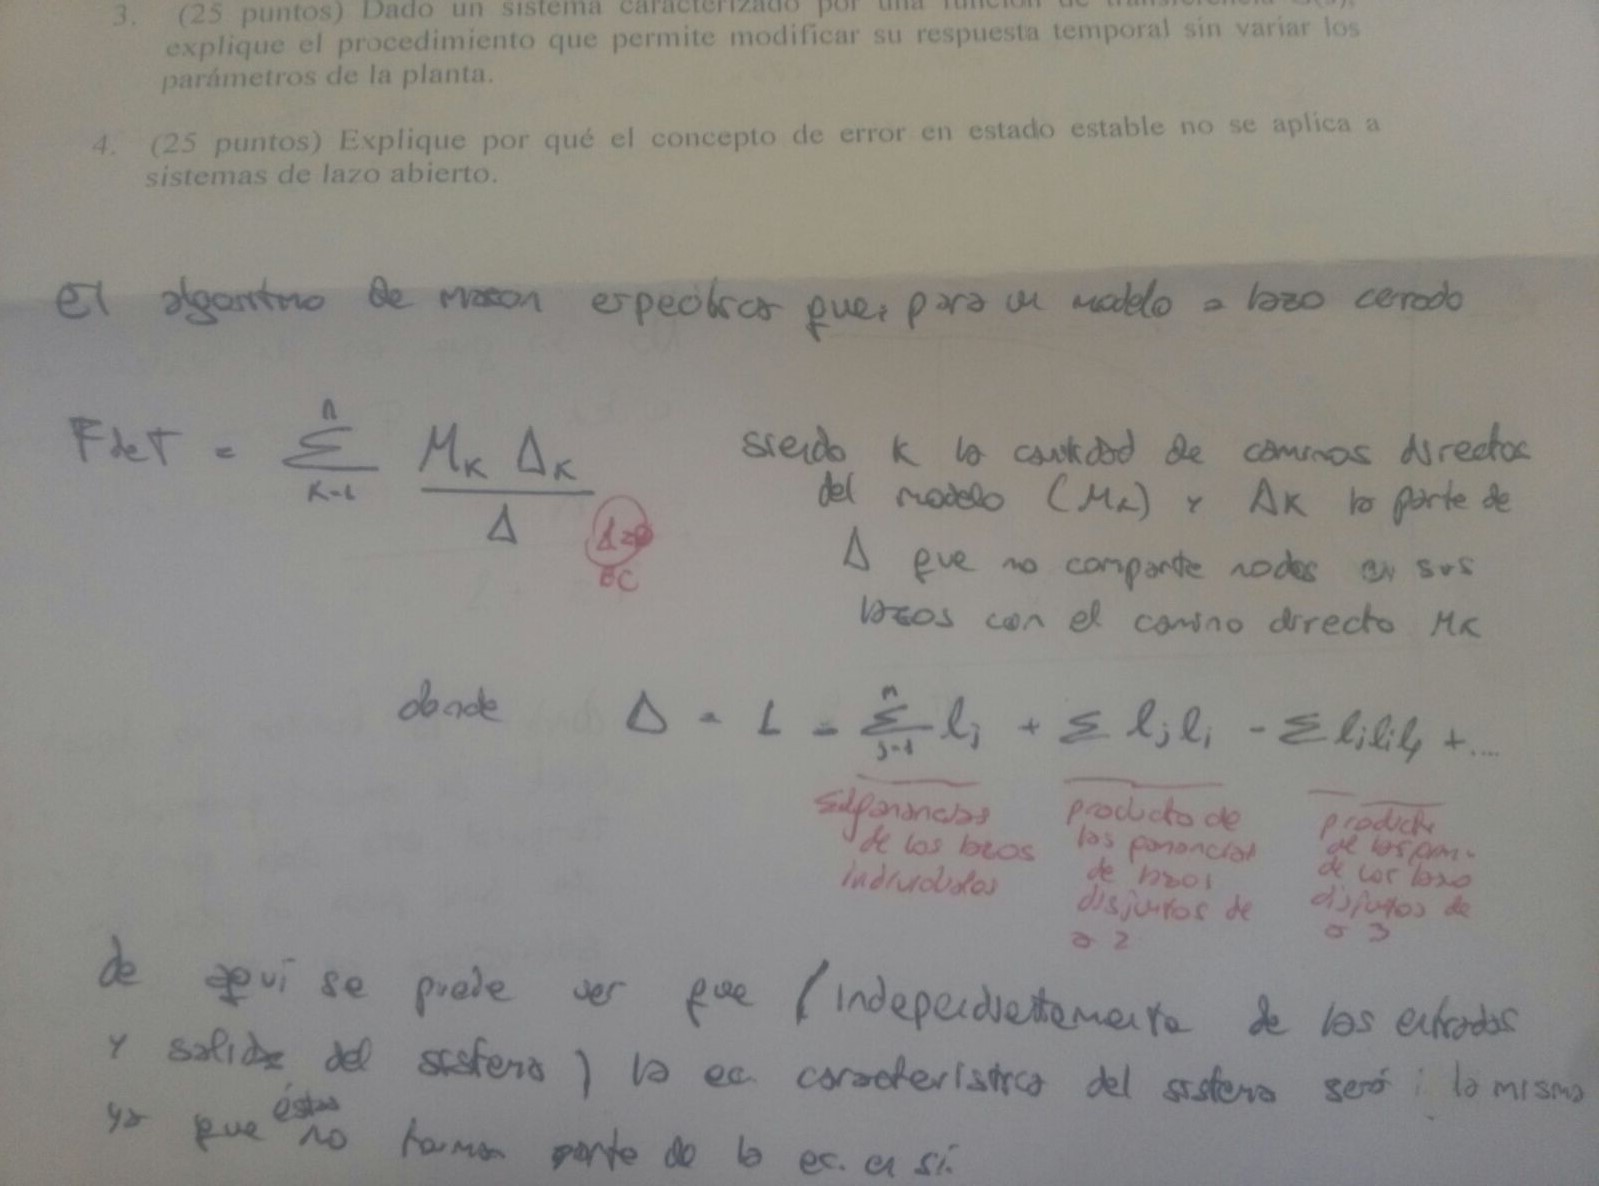 3. (25 puntos) Dado un sistema caracterizado por una función de transferencia G(s),
explique el procedimiento que permite modificar su respuesta temporal sin variar los
parámetros de la planta.
4. (25 puntos) Explique por qué el concepto de error en estado estable no se aplica a
sistemas de lazo abierto.
El algoritmo de mason especifica que, para un modelo a lazo cerrado
FdeT = n Σ K=1 MK ΔK / Δ
siendo K la cantidad de caminos directos
del modelo (MK) y ΔK la parte de
Δ que no comparte nodos en sus
lazos con el camino directo MK
Δ=0
EC
donde Δ = 1 - n Σ j=1 lj + Σ lj li - Σ li li lj + ....
Σ de ganancias
de los lazos
individuales
producto de
las ganancias
de lazos
disjuntos de
a 2
producto
de las gan.
de los lazo
disjuntos de
a 3
de aquí se puede ver que (independientemente de las entradas
y salidas del sistema) la ec. característica del sistema será la misma
ya que éstas no forman parte de la ec. en sí.